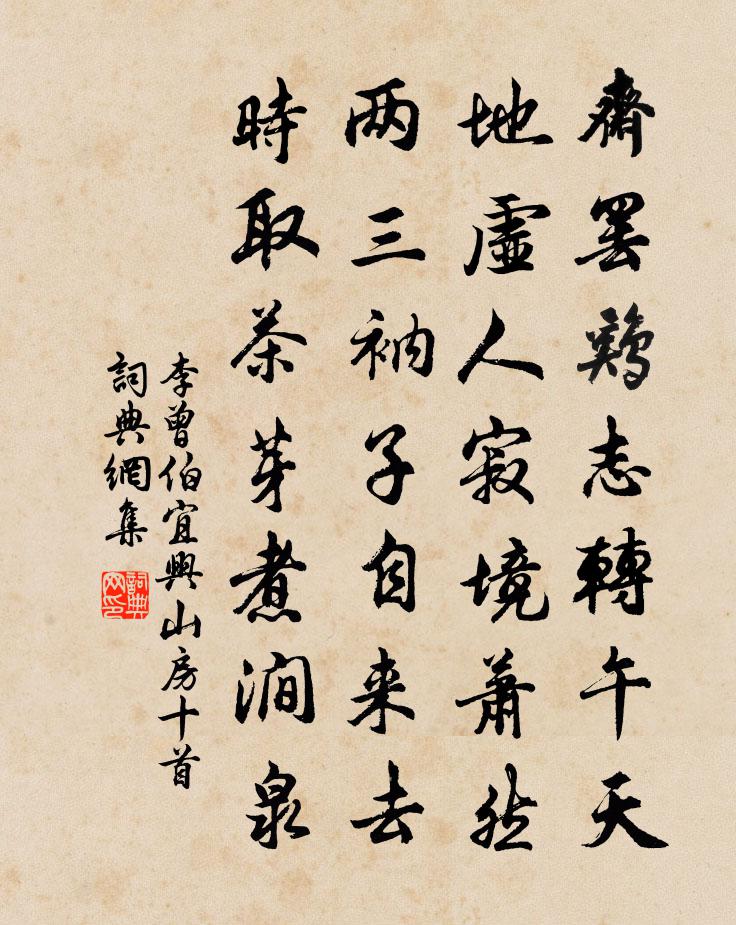 齋罢鷄志轉午天
地虛人寂境蕭然
两三衲子自来去
時取茶芽煮澗泉
李曾伯宜興山房十首
詞典網集
詞典
网印